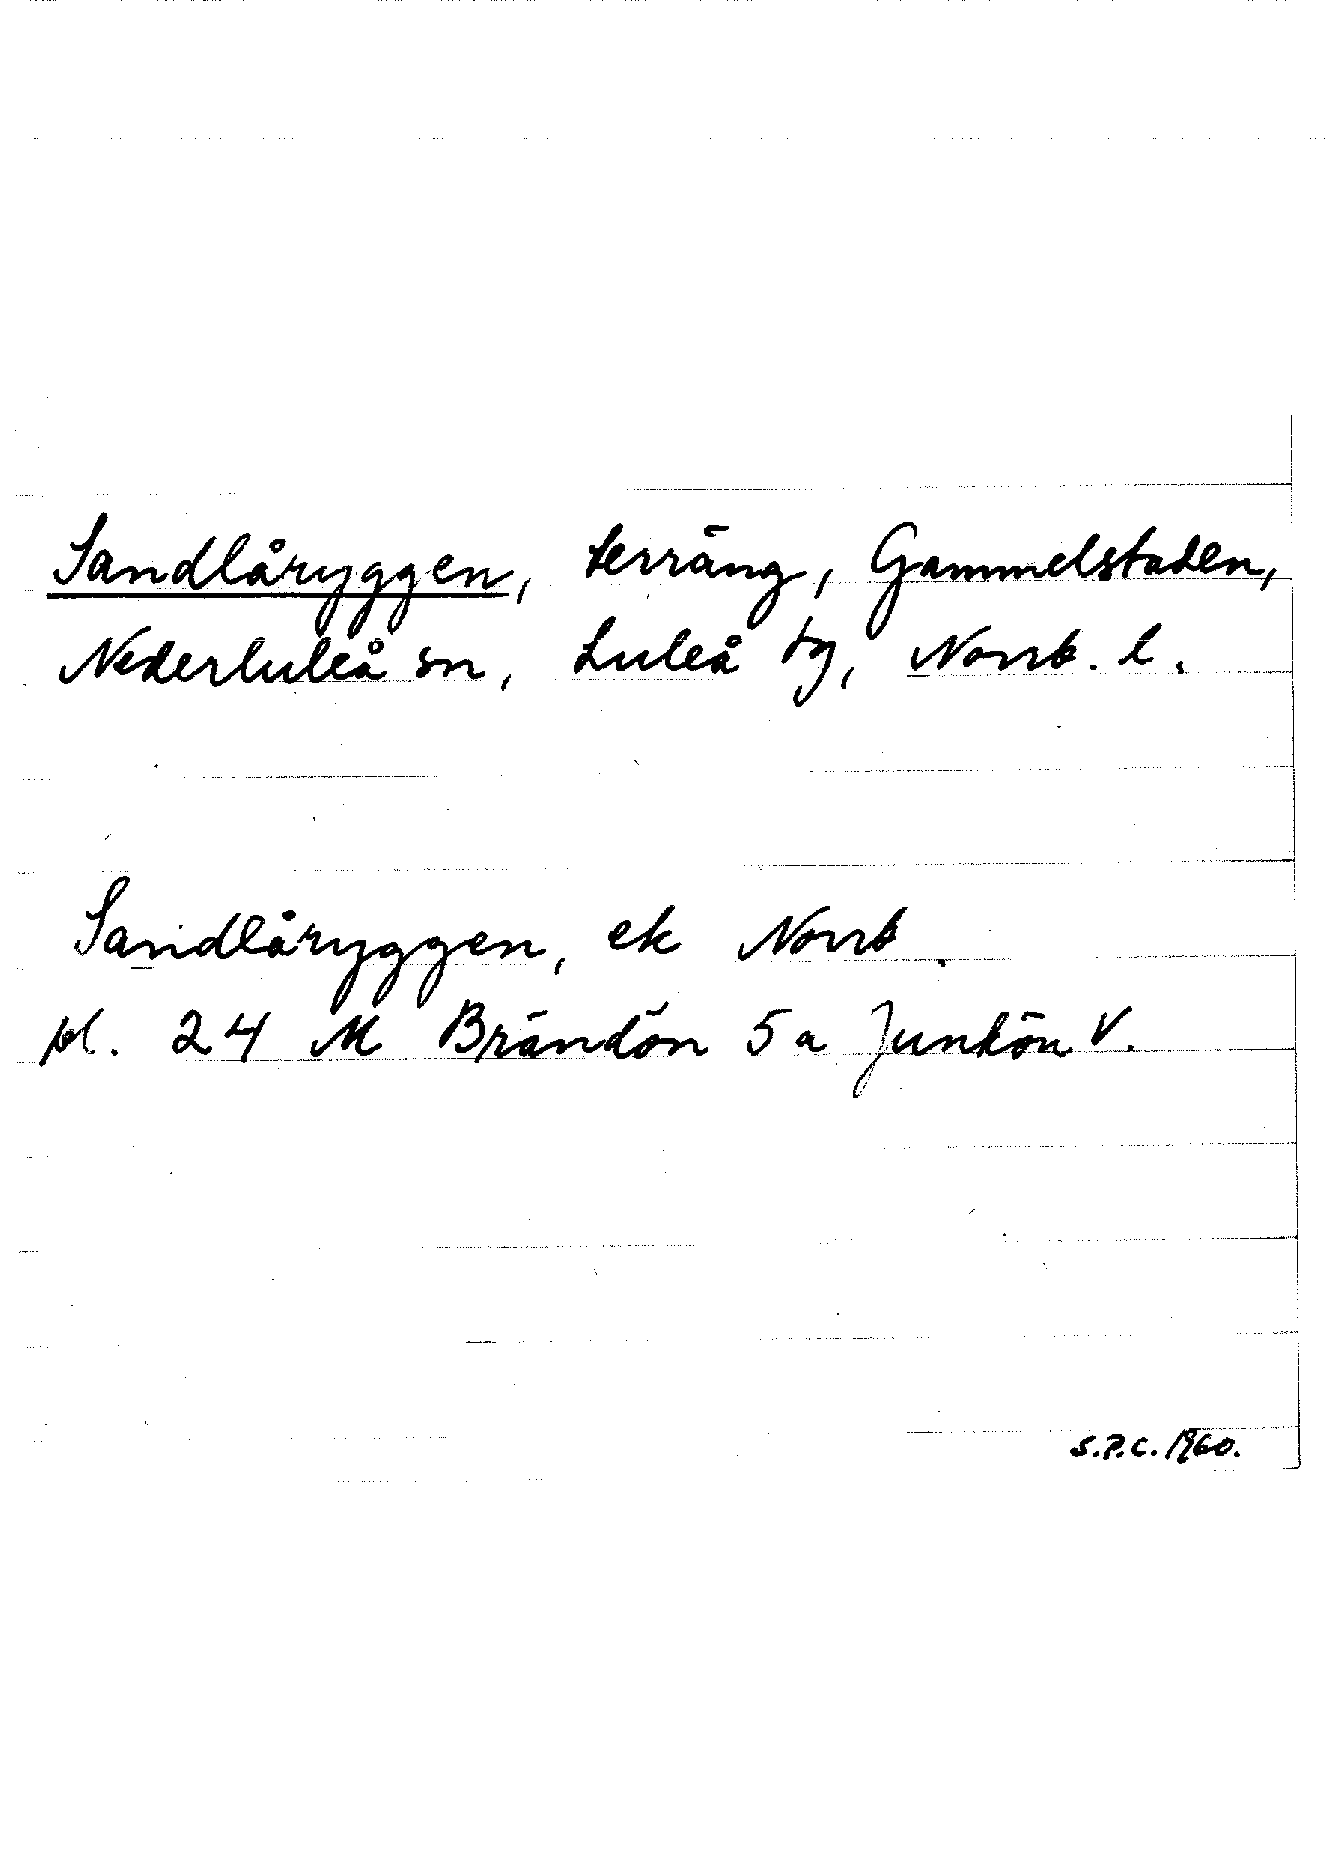 Sandlåryggen, terräng, Gammelstaden,
Nederluleå sn, Luleå tg, Norrb. l.
Sandlåryggen, ek Norrb.
pl. 24 M Brändön 5 a Junkön V.
S.P.C. 1960.